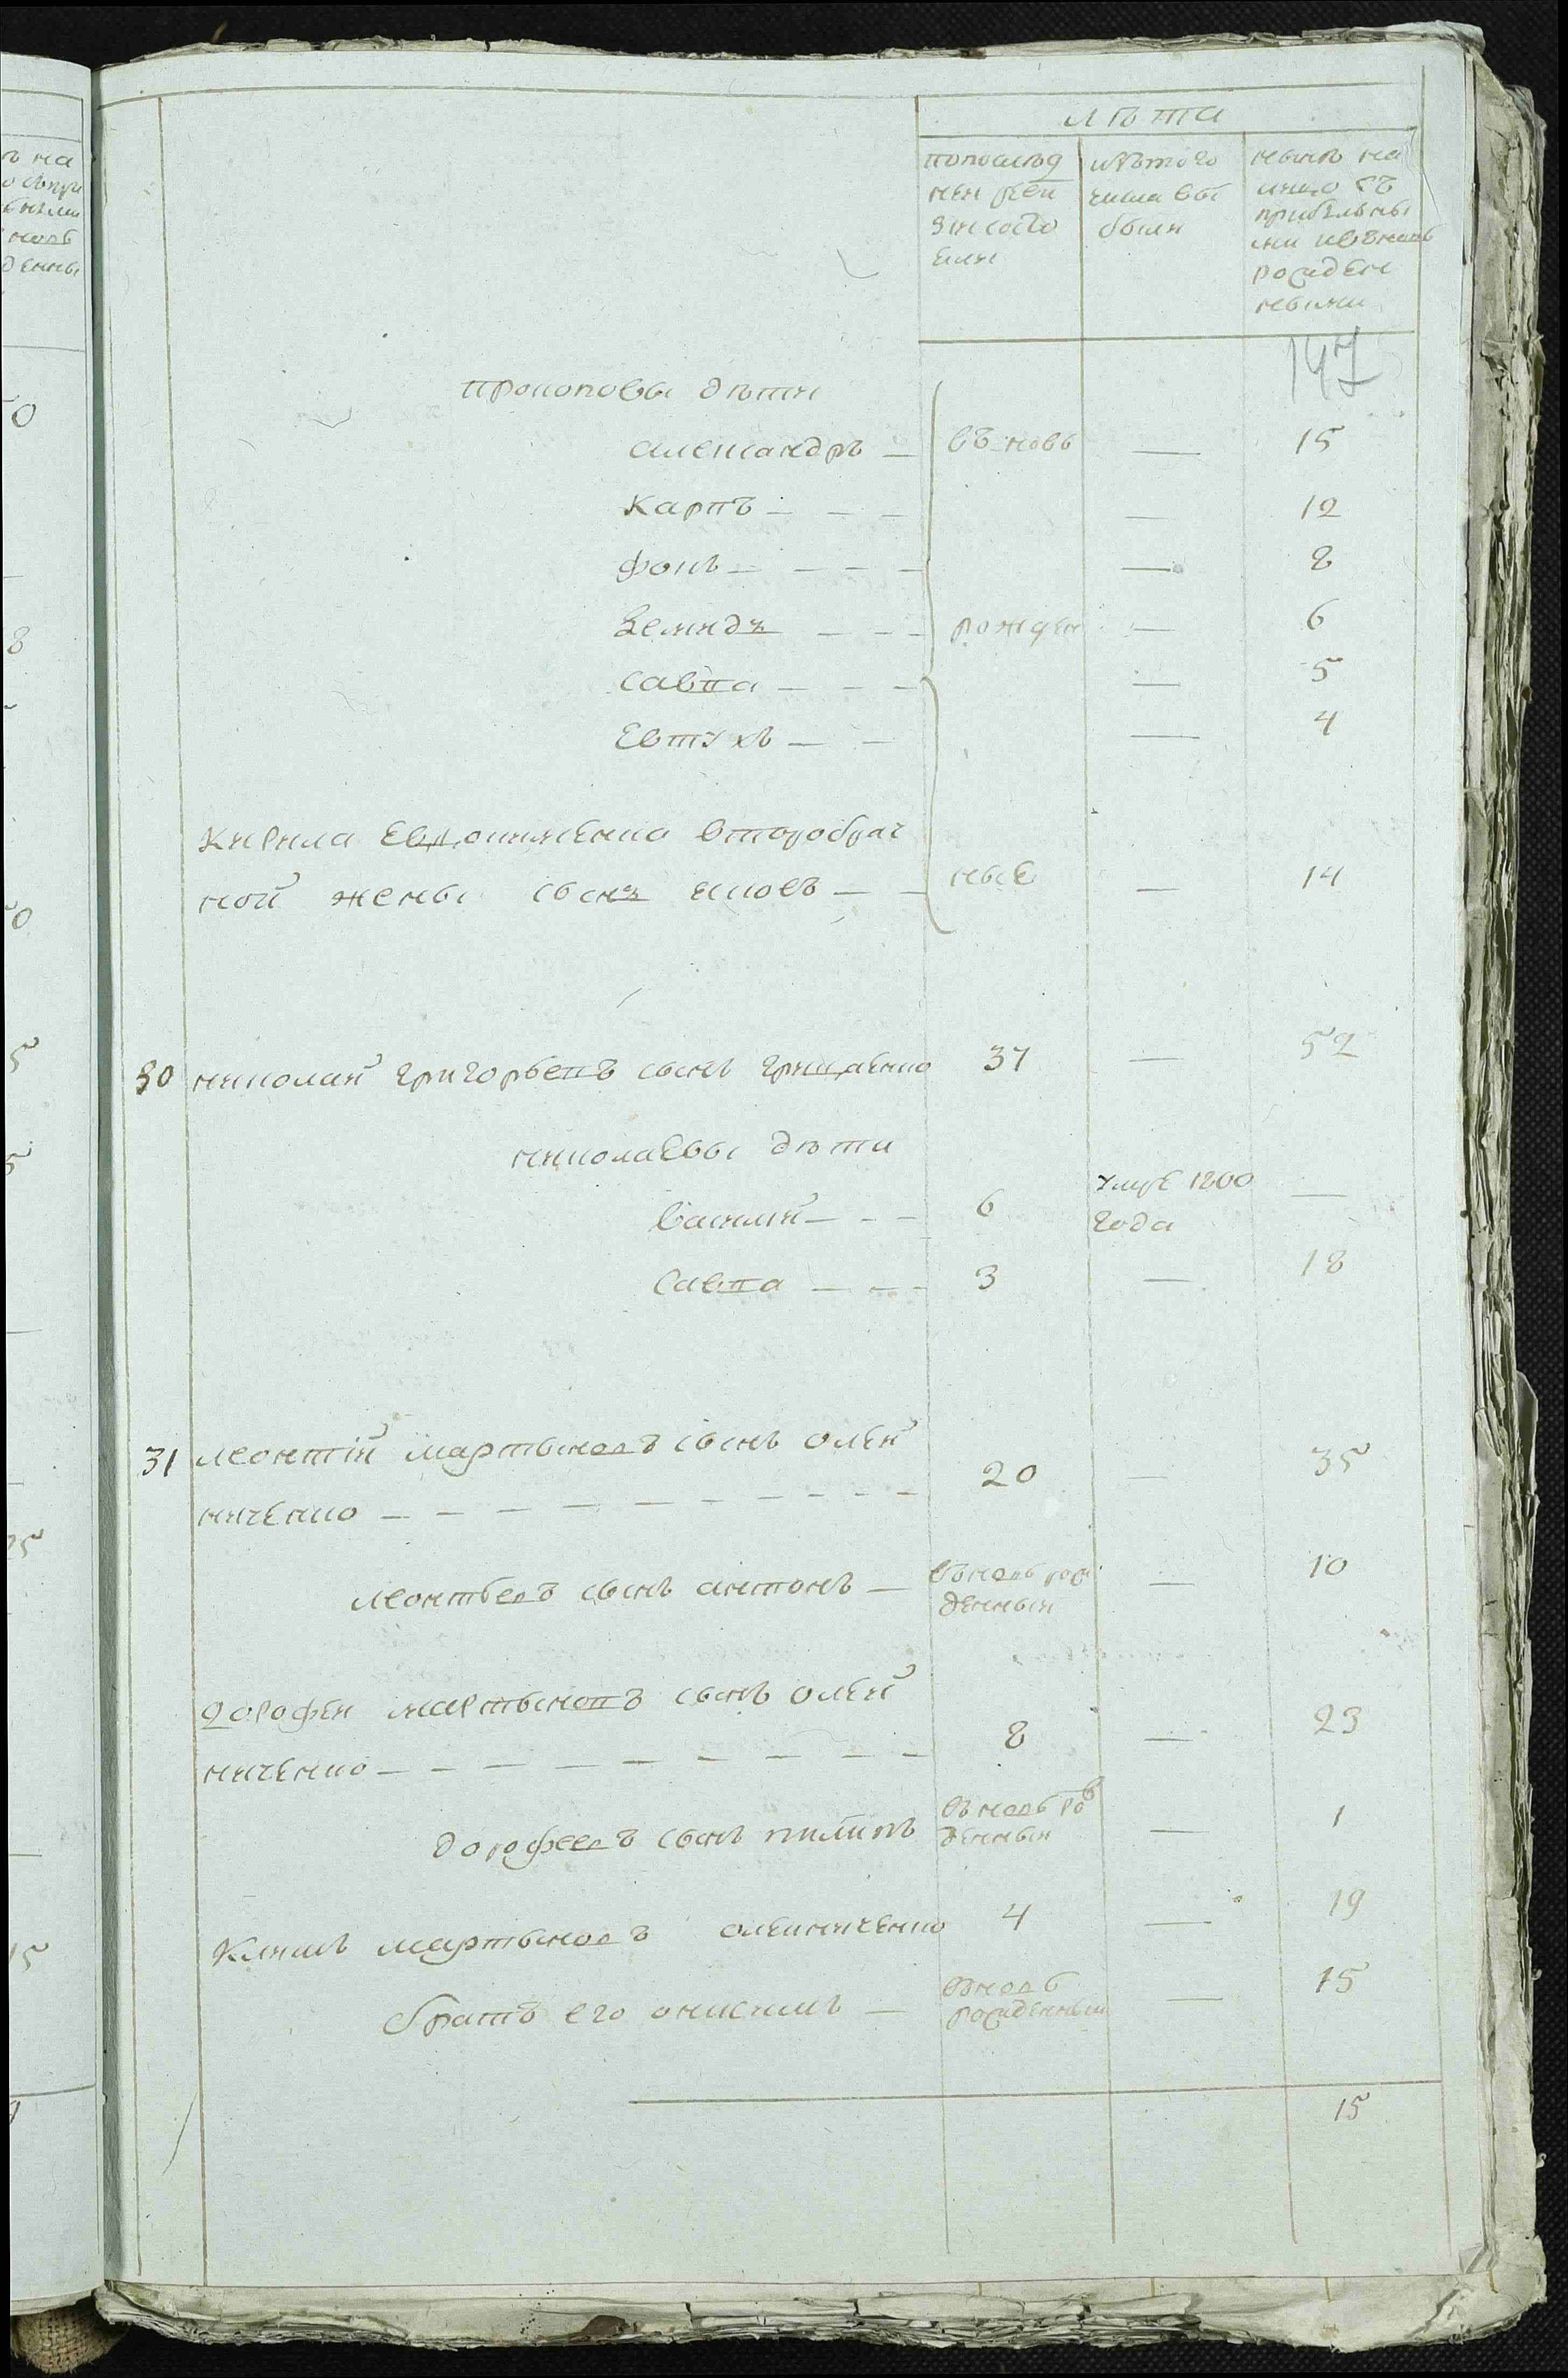 лѣта
попослѣд
ней реви
зіи состо
яли
изтого
числа вы
были
нынѣ на
лицо съ
прибылы
ми ивъновь
рожден
ными
147
прокоповы дѣти
александръ — въновь — 15
Карпъ — — 12
фокъ — — 8
Демидъ — рожден — 6
савва — — 5
Евтухъ — — 4
Кирила Евдокименка второбрач
ной жены сынъ яковъ — ные — 14
30 николай григорьевъ сынъ грищенко 37 — 52
николаевы дѣти
Василий — 6 умре 1800 года —
Савва — 3 — 18
31 леонтій мартыновъ сынъ олей
ниченко — 20 — 35
леонтьевъ сынъ антонъ — въновь рож
денный — 10
дорофей мартыновъ сынъ олей
ниченко — 8 — 23
дорофеевъ сынъ пилипъ въновь рож
денный — 1
Климъ мартыновъ олейниченко 4 — 19
братъ его онисимъ — вновь
рожденный — 15
15